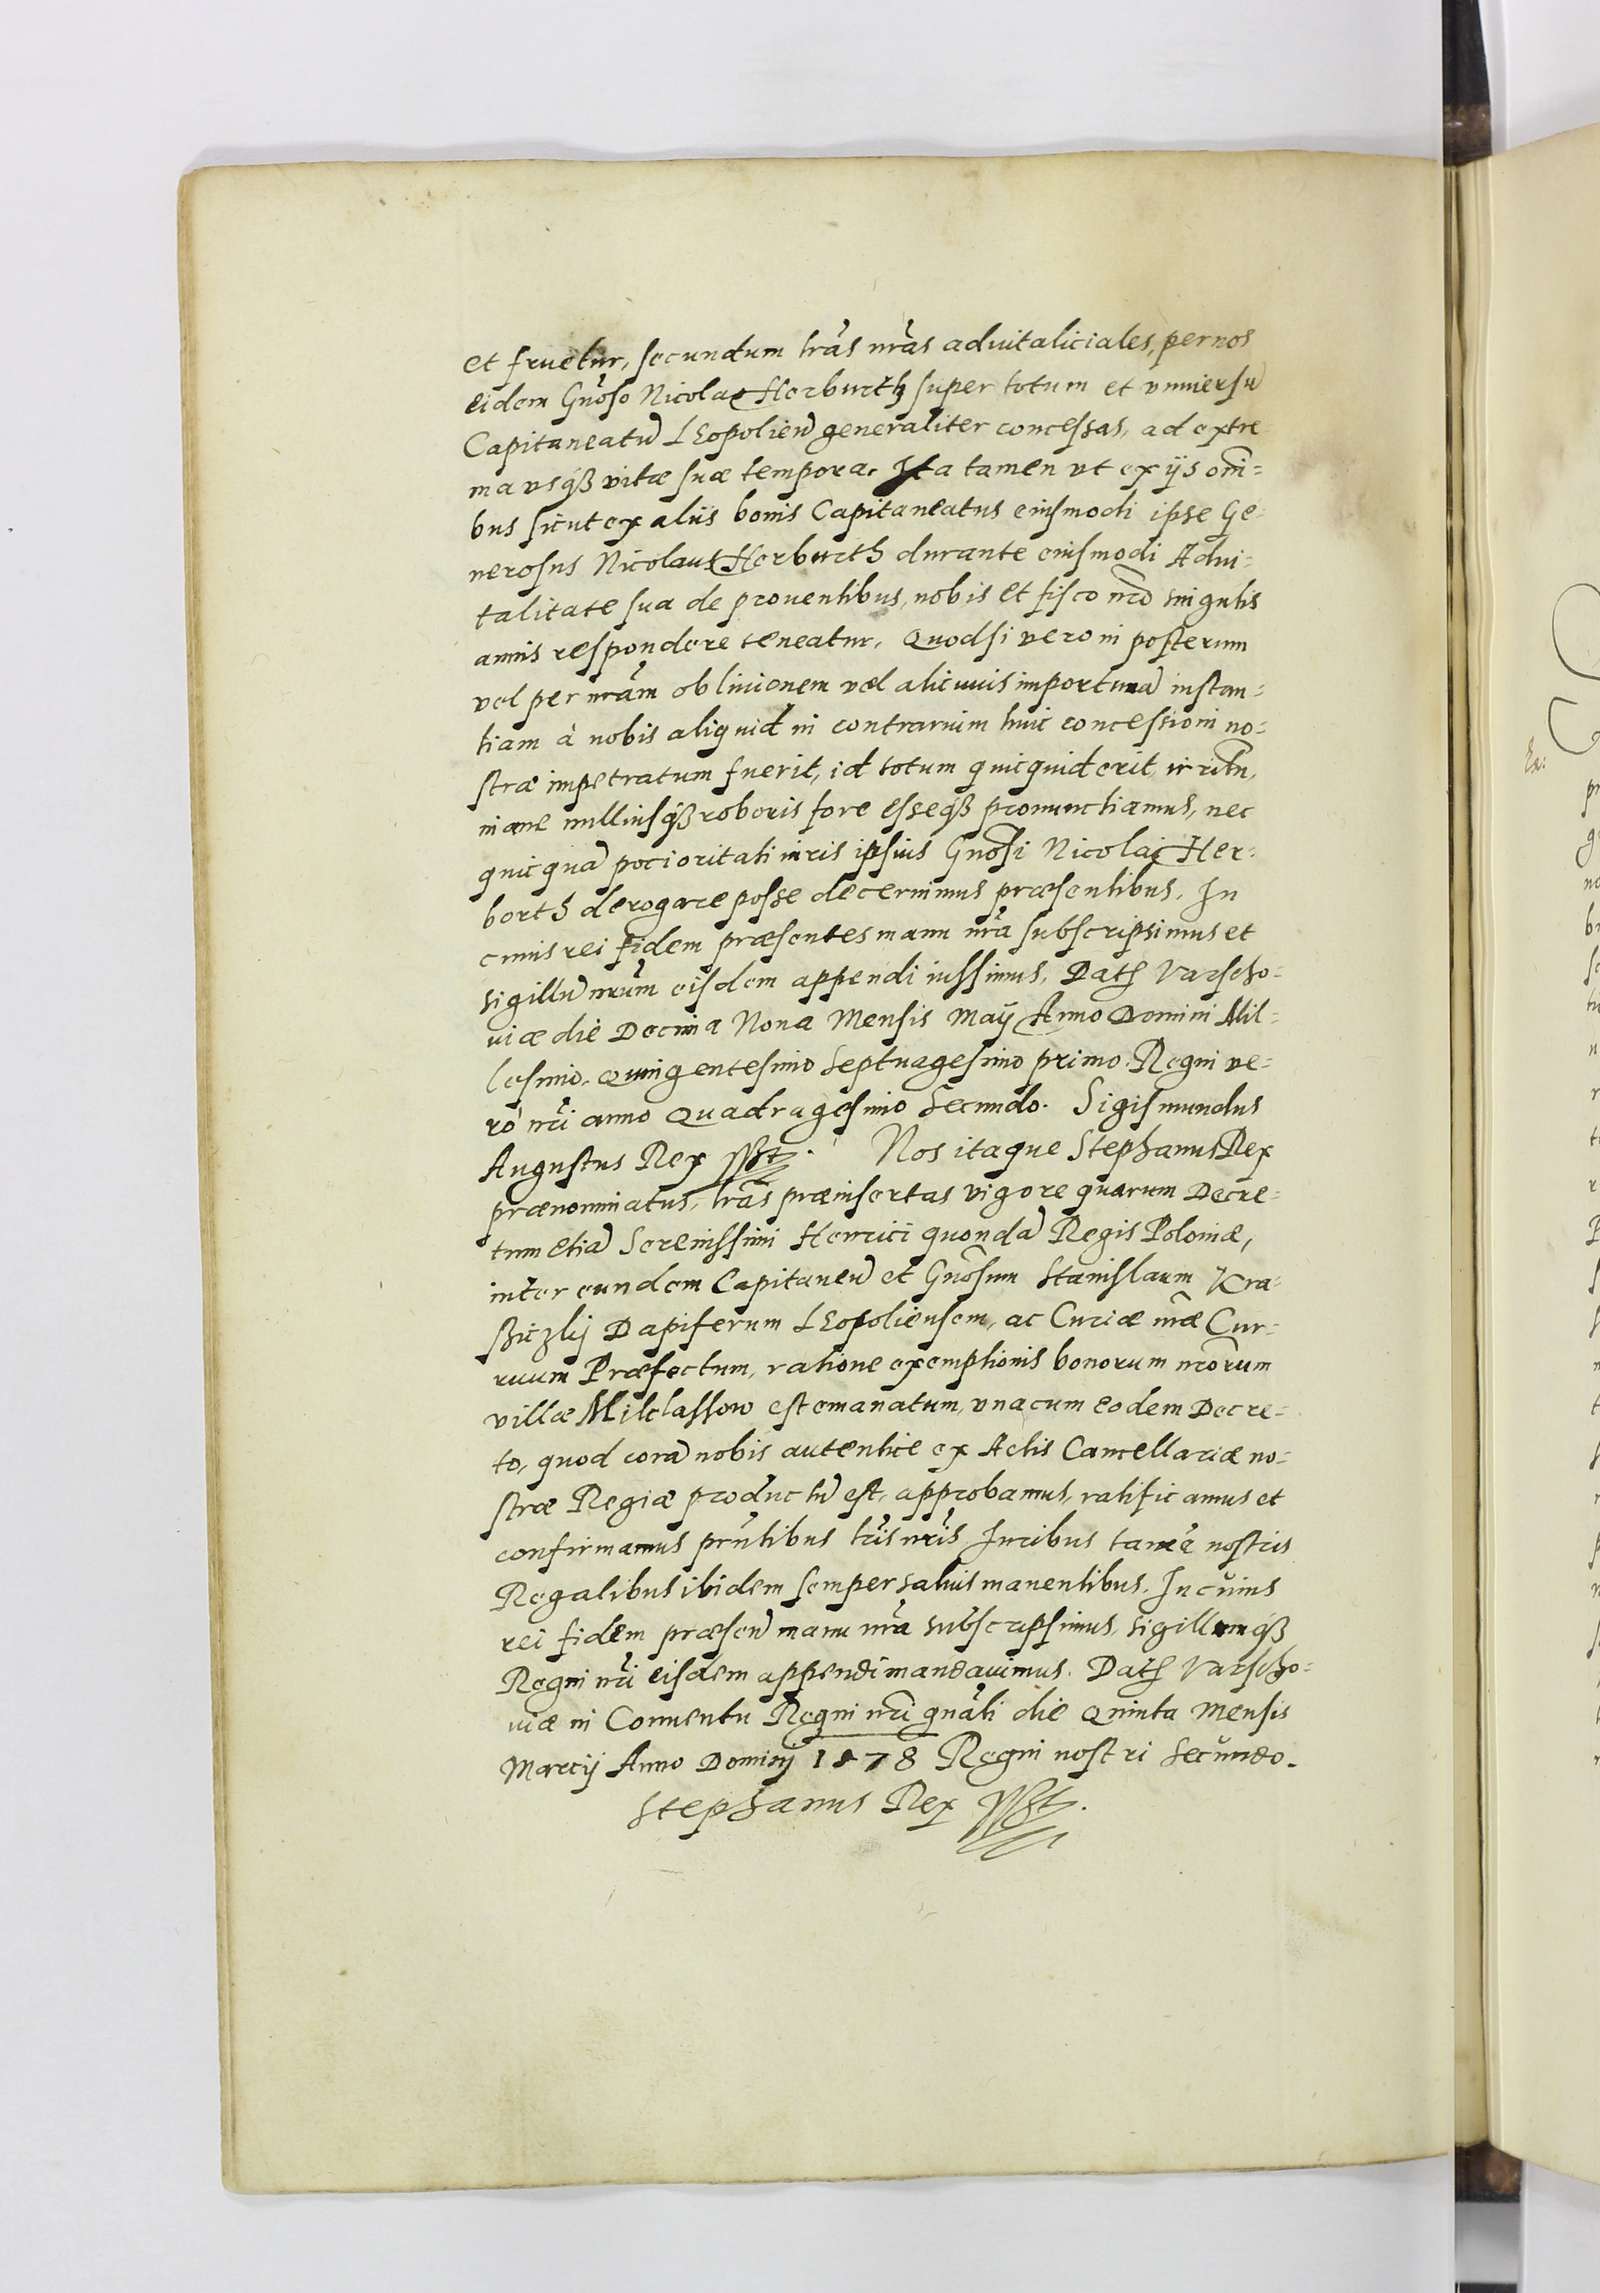 et fruetur, secundum lrãs nrãs aduitaliciales, per nos
eidem Gnoso Nicolao Herburth super totum et vniuersũ
Capitaneatũ Leopolieñ generaliter concessas, ad extre
ma vsqß vitæ suæ tempora. Ita tamen vt ex ijs omi=
bus sicut ex aliis bonis Capitaneatus eiusmodi ipse Ge=
nerosus Nicolaus Herburth durante eiusmodi Adui=
talitate sua de prouentibus, nobis et fisco nro singulis
annis respondere teneatur. Quodsi vero in posterum
vel per nram obliuionem vel alicuius importunã instan=
tiam à nobis aliquid in contrarium huic concessioni no=
stræ impetratum fuerit, id totum quicquid erit, irritũ,
inane nulliusqß roboris fore esseqß pronunctiamus, nec
quicquã pocioritati iuris ipsius Gnosi Nicolai Her=
borth derogare posse decernimus præsentibus. In
cuius rei fidem præsentes manu nra subscripsimus et
sigillũ nrum eisdem appendi iussimus. Dat Varscho=
uiæ die Decima Nona Mensis Maij Anno Domini Mil=
lesimo, Quingentesimo Septuagesimo primo. Regni ve=
rò nri anno Quadragesimo Secundo. Sigismundus
Augustus Rex sst. Nos itaque Stephanus Rex
prænominatus, lrãs præinsertas vigore quarum Decre=
tum etiã Serenissimi Henrici quondã Regis Poloniæ,
inter eundem Capitaneũ et Gnosum Stanislaum Kra=
ßiczkij Dapiferum Leopoliensem, ac Curiæ nræ Cur=
ruum Præfectum, ratione exemptionis bonorum nrorum
villæ Milclassow est emanatum, vnacum eodem Decre=
to, quod corã nobis autentice ex Actis Cancellariæ no=
stræ Regiæ productũ est, approbamus, ratificamus et
confirmamus pñtibus lris nris Iuribus tamẽ nostris
Regalibus ibidem semper saluis manentibus. In cuius
rei fidem præseñ manu nra subscripsimus, sigillumqß
Regni nri eisdem appendi mandauimus. Dat Varscho=
uiæ in Conuentu Regni nri gnãli die Quinta Mensis
Marcij Anno Dominj 1578 Regni nostri Secundo.
Stephanus Rex sst.
Ex: